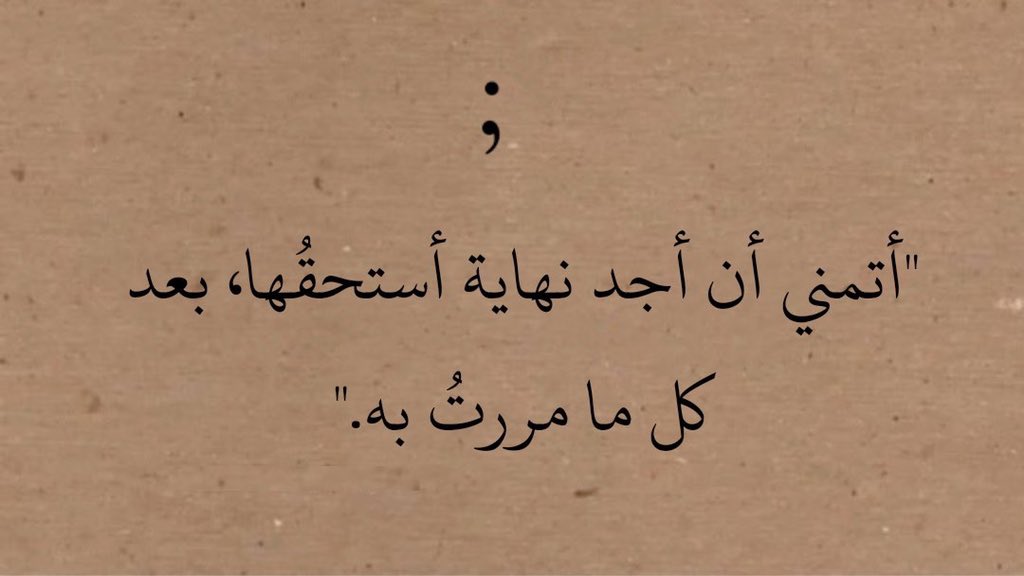 ;
"أتمني أن أجد نهاية أستحقُها، بعد
كل ما مررتُ به."